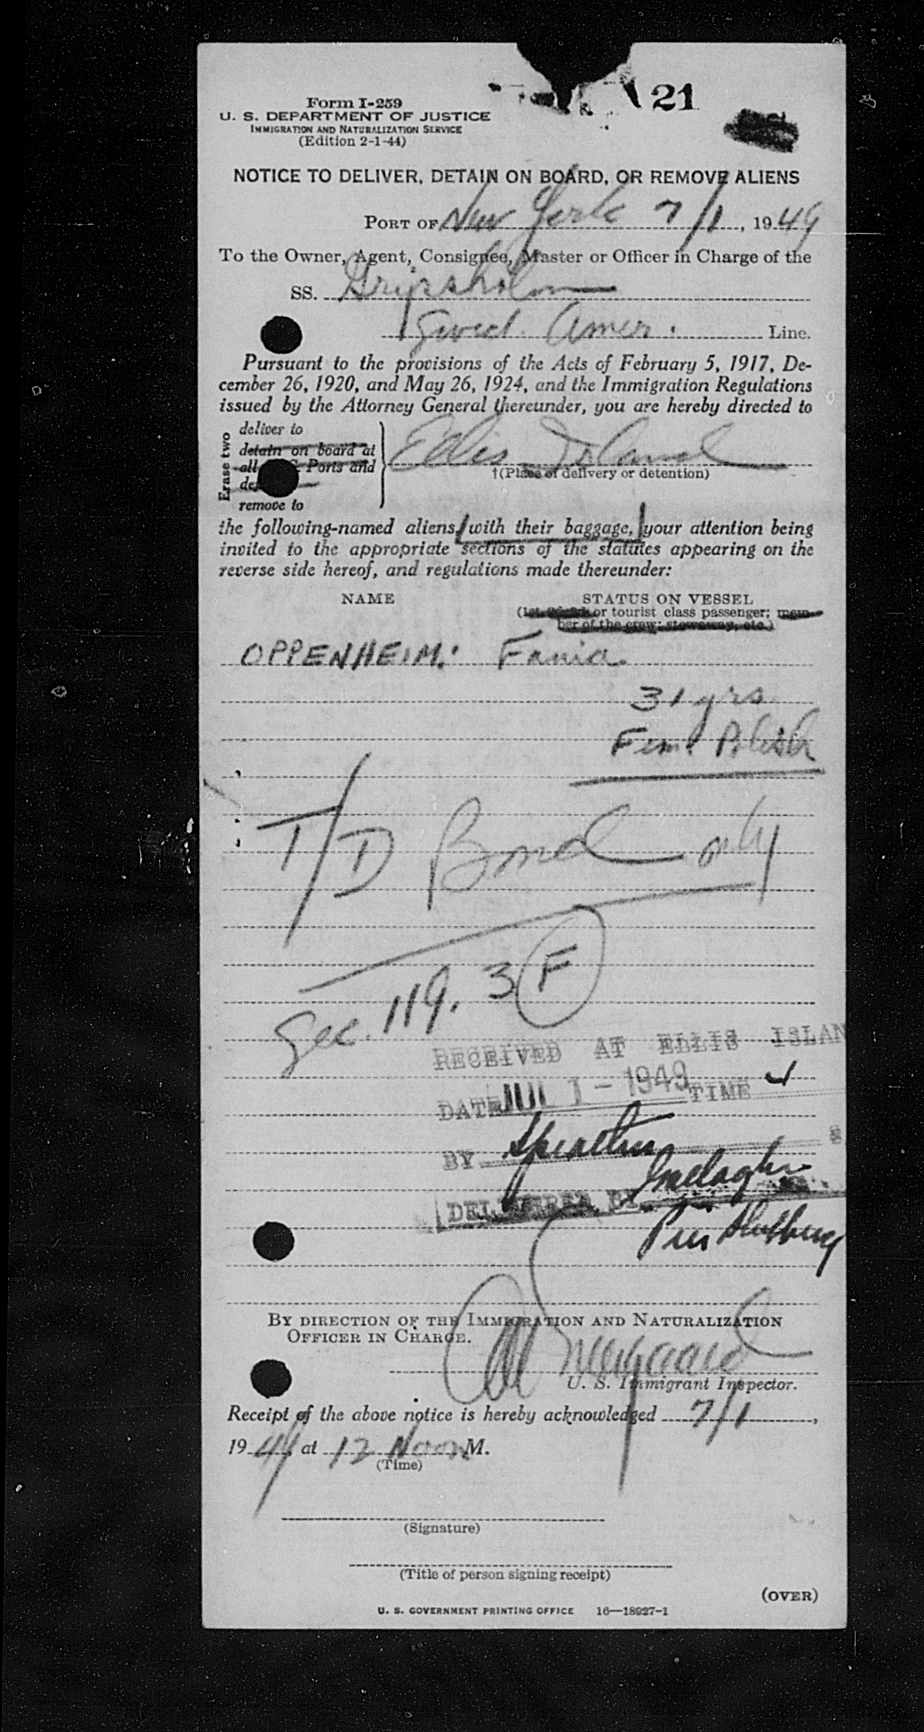 21
Form I-259
U. S. DEPARTMENT OF JUSTICE
IMMIGRATION AND NATURALIZATION SERVICE
(Edition 2-1-44)
NOTICE TO DELIVER, DETAIN ON BOARD, OR REMOVE ALIENS
PORT OF New York 7/1, 1949
To the Owner, Agent, Consignee, Master or Officer in Charge of the
SS. Gripsholm
Swed. Amer. Line.
Pursuant to the provisions of the Acts of February 5, 1917, De-
cember 26, 1920, and May 26, 1924, and the Immigration Regulations
issued by the Attorney General thereunder, you are hereby directed to
Erase two
deliver to
detain on board at
all Ports and
remove to
Ellis Island
†(Place of delivery or detention)
the following-named aliens, with their baggage, your attention being
invited to the appropriate sections of the statutes appearing on the
reverse side hereof, and regulations made thereunder:
NAME STATUS ON VESSEL
(1st or tourist class passenger; mem-
ber of the crew; stowaway, etc.)
OPPENHEIM: Fania
31 yrs
Fem. Polish
T/D Bond only
Sec. 119. 3 F
RECEIVED AT ELLIS ISLAN
DATE JUL 1 - 1949 TIME 4
BY
DELIVERED BY
BY DIRECTION OF THE IMMIGRATION AND NATURALIZATION
OFFICER IN CHARGE.
U. S. Immigrant Inspector.
Receipt of the above notice is hereby acknowledged 7/1,
1949, at 12 Noon M.
(Time)
(Signature)
(Title of person signing receipt)
(OVER)
U. S. GOVERNMENT PRINTING OFFICE 16—18927-1